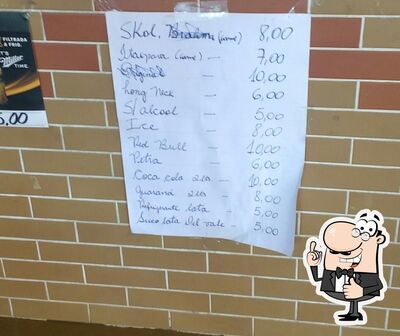 FILTRADA
A FRIO.
IT'S
Miller
TIME.
5,00
Skol, Brahma (lame) 8,00
Itaipava (lame) — 7,00
Original — 10,00
Long Neck — 6,00
S/alcool — 5,00
Ice — 8,00
Red Bull — 10,00
Petra — 6,00
Coca cola 2lts — 10,00
Guaraná 2lts — 8,00
Refrigerante lata — 5,00
Suco lata Del vale — 5,00